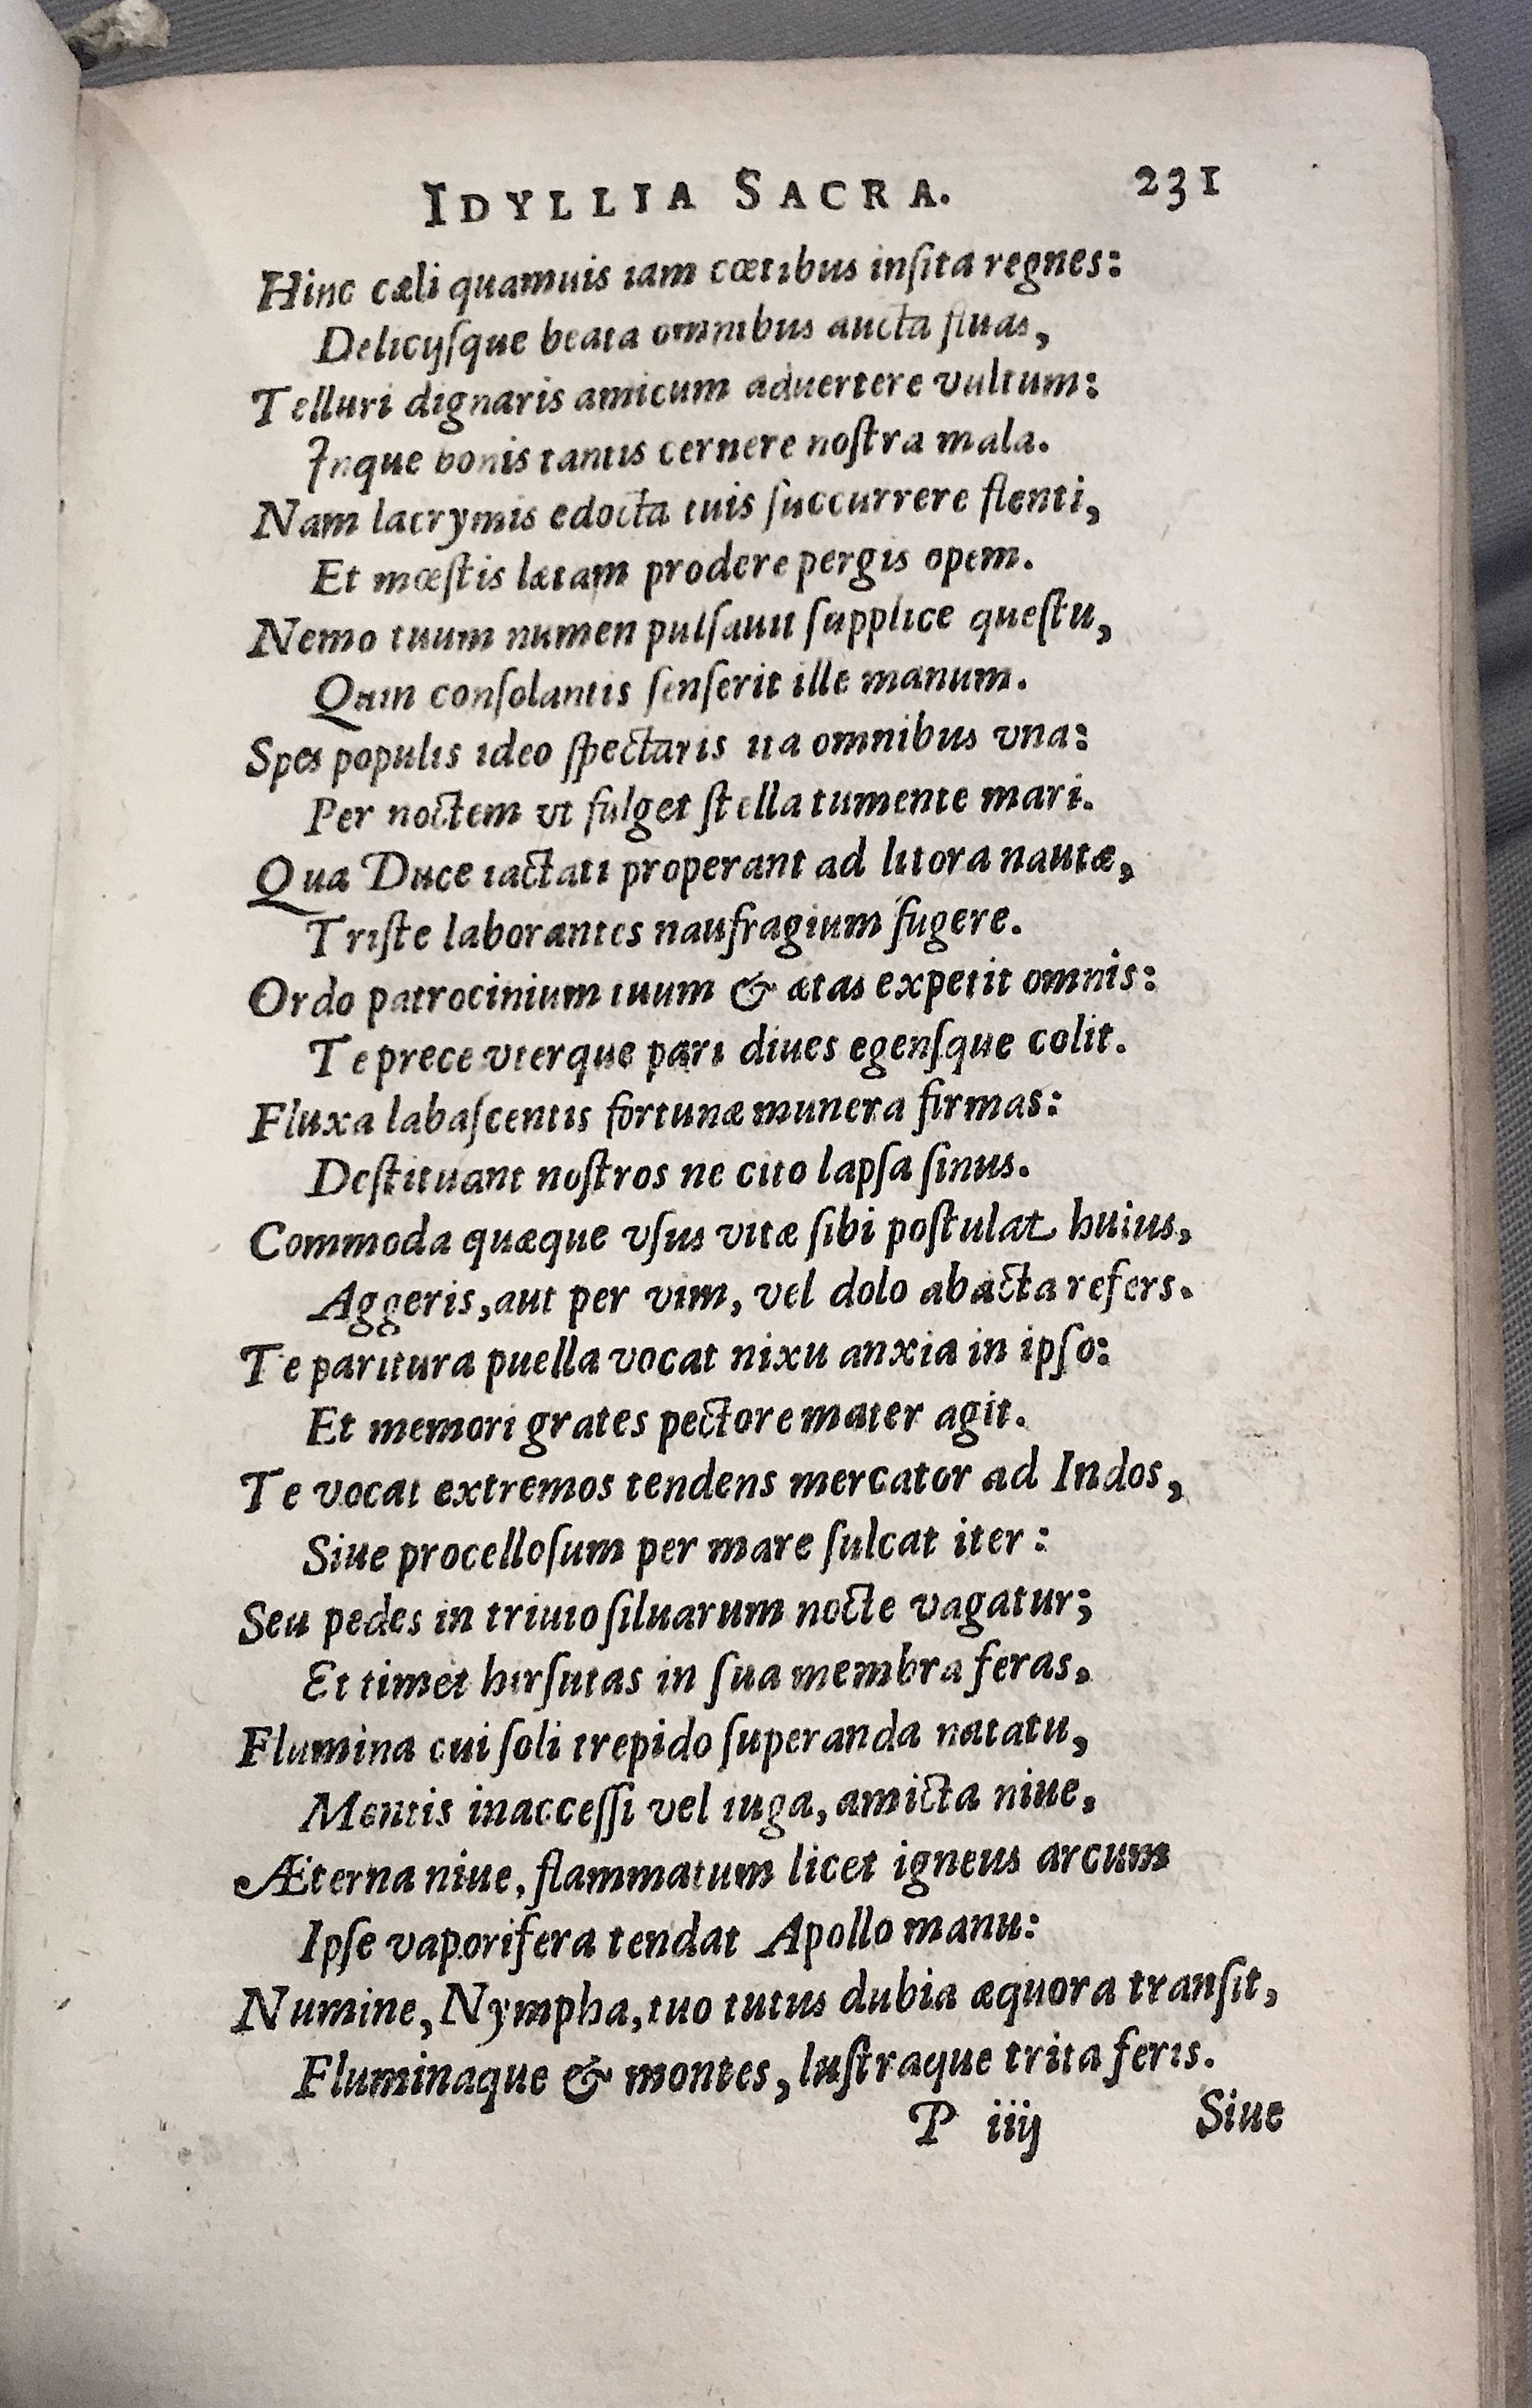 IDYLLIA SACRA. 231
Hinc cæli quamuis iam cœtibus inſita regnes:
Delicijſque beata omnibus aucta fluas,
Telluri dignaris amicum aduertere vultum:
Inque bonis tantis cernere noſtra mala.
Nam lacrymis edocta tuis ſuccurrere flenti,
Et mœſtis lætam prodere pergis opem.
Nemo tuum numen pulſauit ſupplice queſtu,
Quin conſolantis ſenſerit ille manum.
Spes populis ideo ſpectaris ita omnibus vna:
Per noctem vt fulget ſtella tumente mari.
Qua Duce iactati properant ad litora nautæ,
Triſte laborantes naufragium fugere.
Ordo patrocinium tuum & ætas expetit omnis:
Te prece vterque pari diues egenſque colit.
Fluxa labaſcentis fortunæ munera firmas:
Deſtituant noſtros ne cito lapſa ſinus.
Commoda quæque vſus vitæ ſibi poſtulat huius,
Aggeris, aut per vim, vel dolo abacta refers.
Te paritura puella vocat nixu anxia in ipſo:
Et memori grates pectore mater agit.
Te vocat extremos tendens mercator ad Indos,
Siue procelloſum per mare ſulcat iter:
Seu pedes in triuio ſiluarum nocte vagatur;
Et timet hirſutas in ſua membra feras,
Flumina cui ſoli trepido ſuperanda natatu,
Mentis inacceſſi vel iuga, amicta niue,
Æterna niue, flammatum licet igneus arcum
Ipſe vaporifera tendat Apollo manu:
Numine, Nympha, tuo tutus dubia æquora tranſit,
Fluminaque & montes, luſtraque trita feris.
P iiij Siue